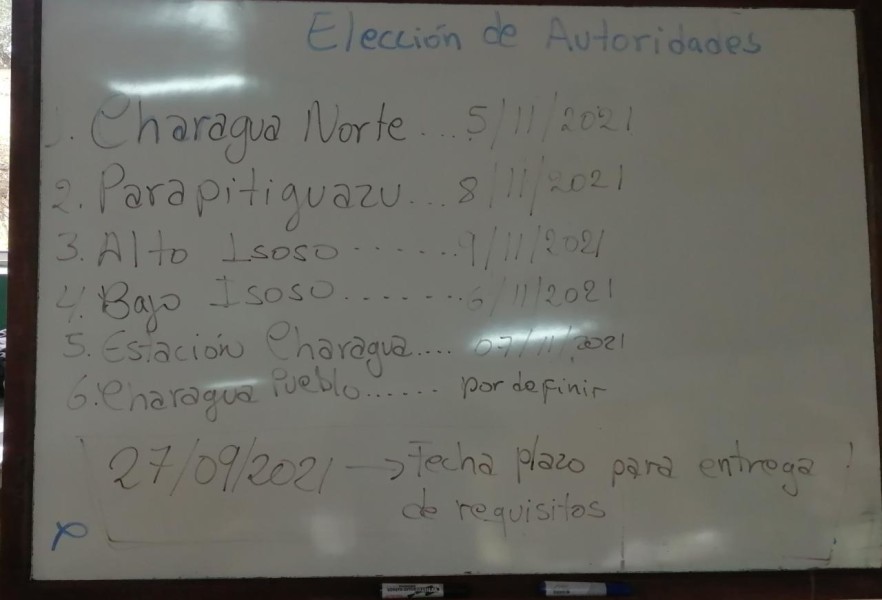 Elección de Autoridades
1. Charagua Norte... 5/11/2021
2. Parapitiguazu... 8/11/2021
3. Alto Isoso ......... 9/11/2021
4. Bajo Isoso........ 6/11/2021
5. Estación Charagua.... 07/11/2021
6. Charagua Pueblo...... por definir
27/09/2021 → Fecha plazo para entrega
de requisitos